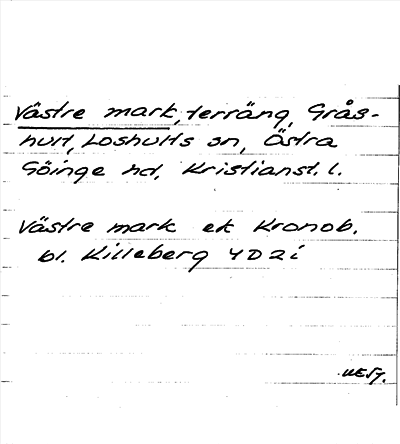 Västre mark, terräng, Grås-
hult, Loshults sn, Östra
Göinge hd, Kristianst. l.
Västre mark ek Kronob.
bl. Killeberg 4D2i